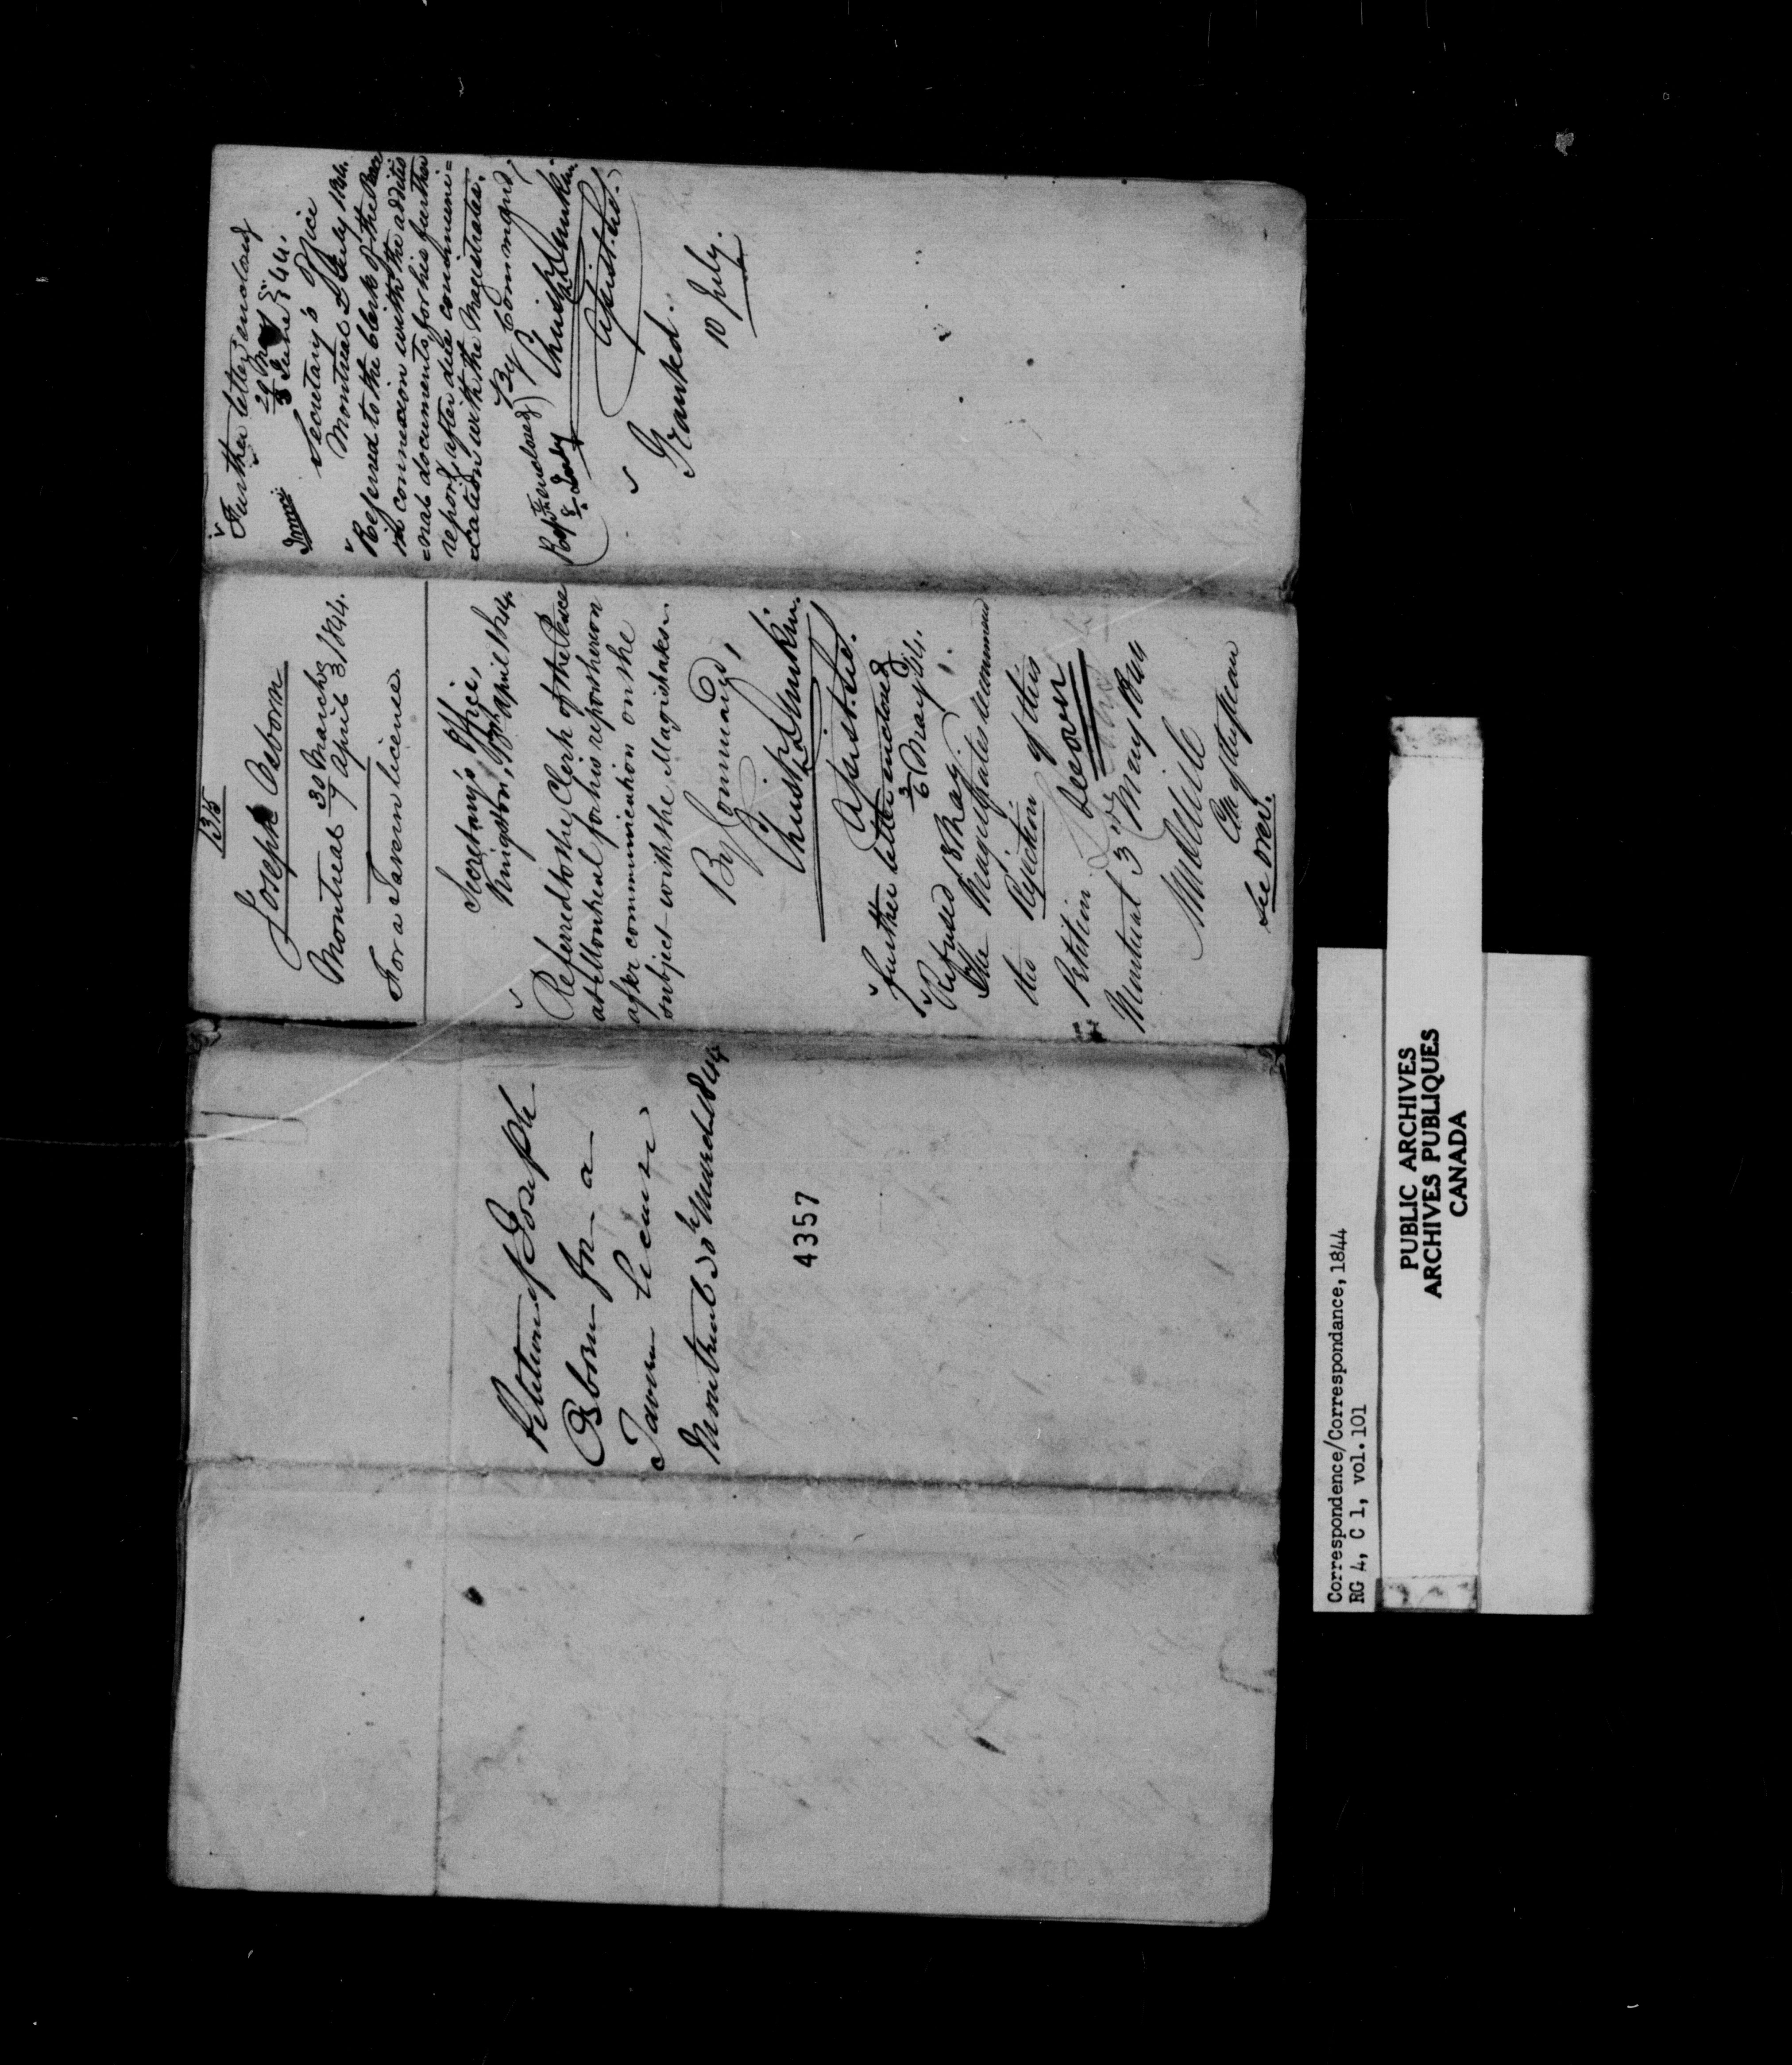 Petition of Joseph
Osborn for a
Tavern license
Montreal 30h March 1844
4357
1315
Joseph Osborn
Montreal 30 March
7 April 1844.
For a Tavern license.
Secretary's Office,
Kingston, April 1844.
Referred to the Clerk of the Peace
at Montreal for his report hereon
after communication on the
subject with the Magistrates.
By Command,
Christ. Dunkin.
Asist. Sec.
Further letter enclosed
3/6 May 44.
Refused 18 May
The Magistrates recommend
the Rejection of this
Petition
Montreal 3 May 1844
See over.
Further letter enclosed
29 May
3 June 44.
Secretary's Office
Montreal July 1844.
Referred to the Clerk of the Peace
in connexion with the additio
=nal documents, for his further
report, after due communi=
=cation with the Magistrates.
By Command,
Christ. Dunkin.
Asist. Sec.
Rep. enclosed
8 July
Granked.
10 July.
Correspondence/Correspondance, 1844
RG 4, C 1, vol. 101
PUBLIC ARCHIVES
ARCHIVES PUBLIQUES
CANADA